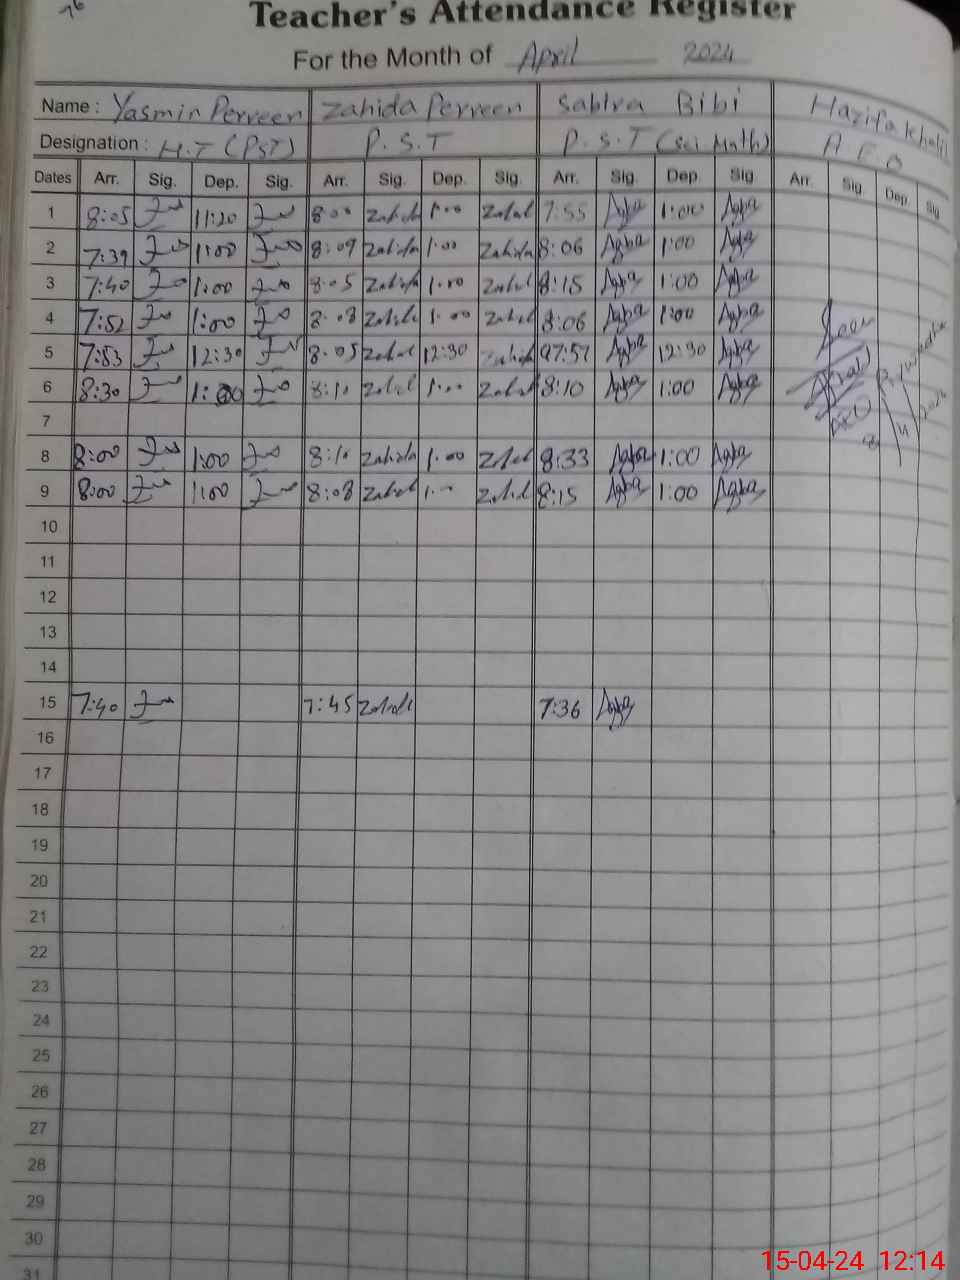 76
Teacher's Attendance Register
For the Month of April 2024
Name : Yasmin Perveen Zahida Perveen Sabira Bibi
Designation : H.T (PST) P.S.T P.S.T (Sci Math) A E O
Dates Arr. Sig. Dep. Sig. Arr. Sig. Dep. Sig. Arr. Sig Dep. Sig Arr. Sig. Dep. Sig
1 8:05 11:20 8:00 Zahida 1:00 Zahida 7:55 1:00
2 7:39 1:00 8:09 Zahida 1:00 Zahida 8:06 1:00
3 7:40 1:00 8:05 Zahida 1:00 Zahida 8:15 1:00
4 7:52 1:00 8:08 Zahida 1:00 Zahida 8:06 1:00
5 7:53 12:30 8:05 Zahida 12:30 Zahida 07:57 12:30
6 8:30 1:00 8:10 Zahida 1:00 Zahida 8:10 1:00
7
8 8:00 1:00 8:10 Zahida 1:00 Zahida 8:33 1:00
9 8:00 1:00 8:08 Zahida 1:00 Zahida 8:15 1:00
10
11
12
13
14
15 7:40 7:45 Zahida 7:36
16
17
18
19
20
21
22
23
24
25
26
27
28
29
30
31
15-04-24 12:14